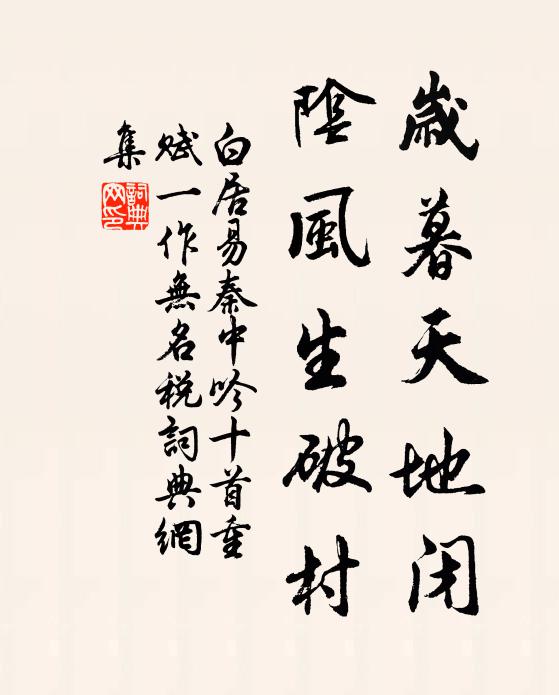 歲暮天地閉
陰風生破村
白居易秦中吟十首重
賦一作無名税詞典網
集
詞典网印